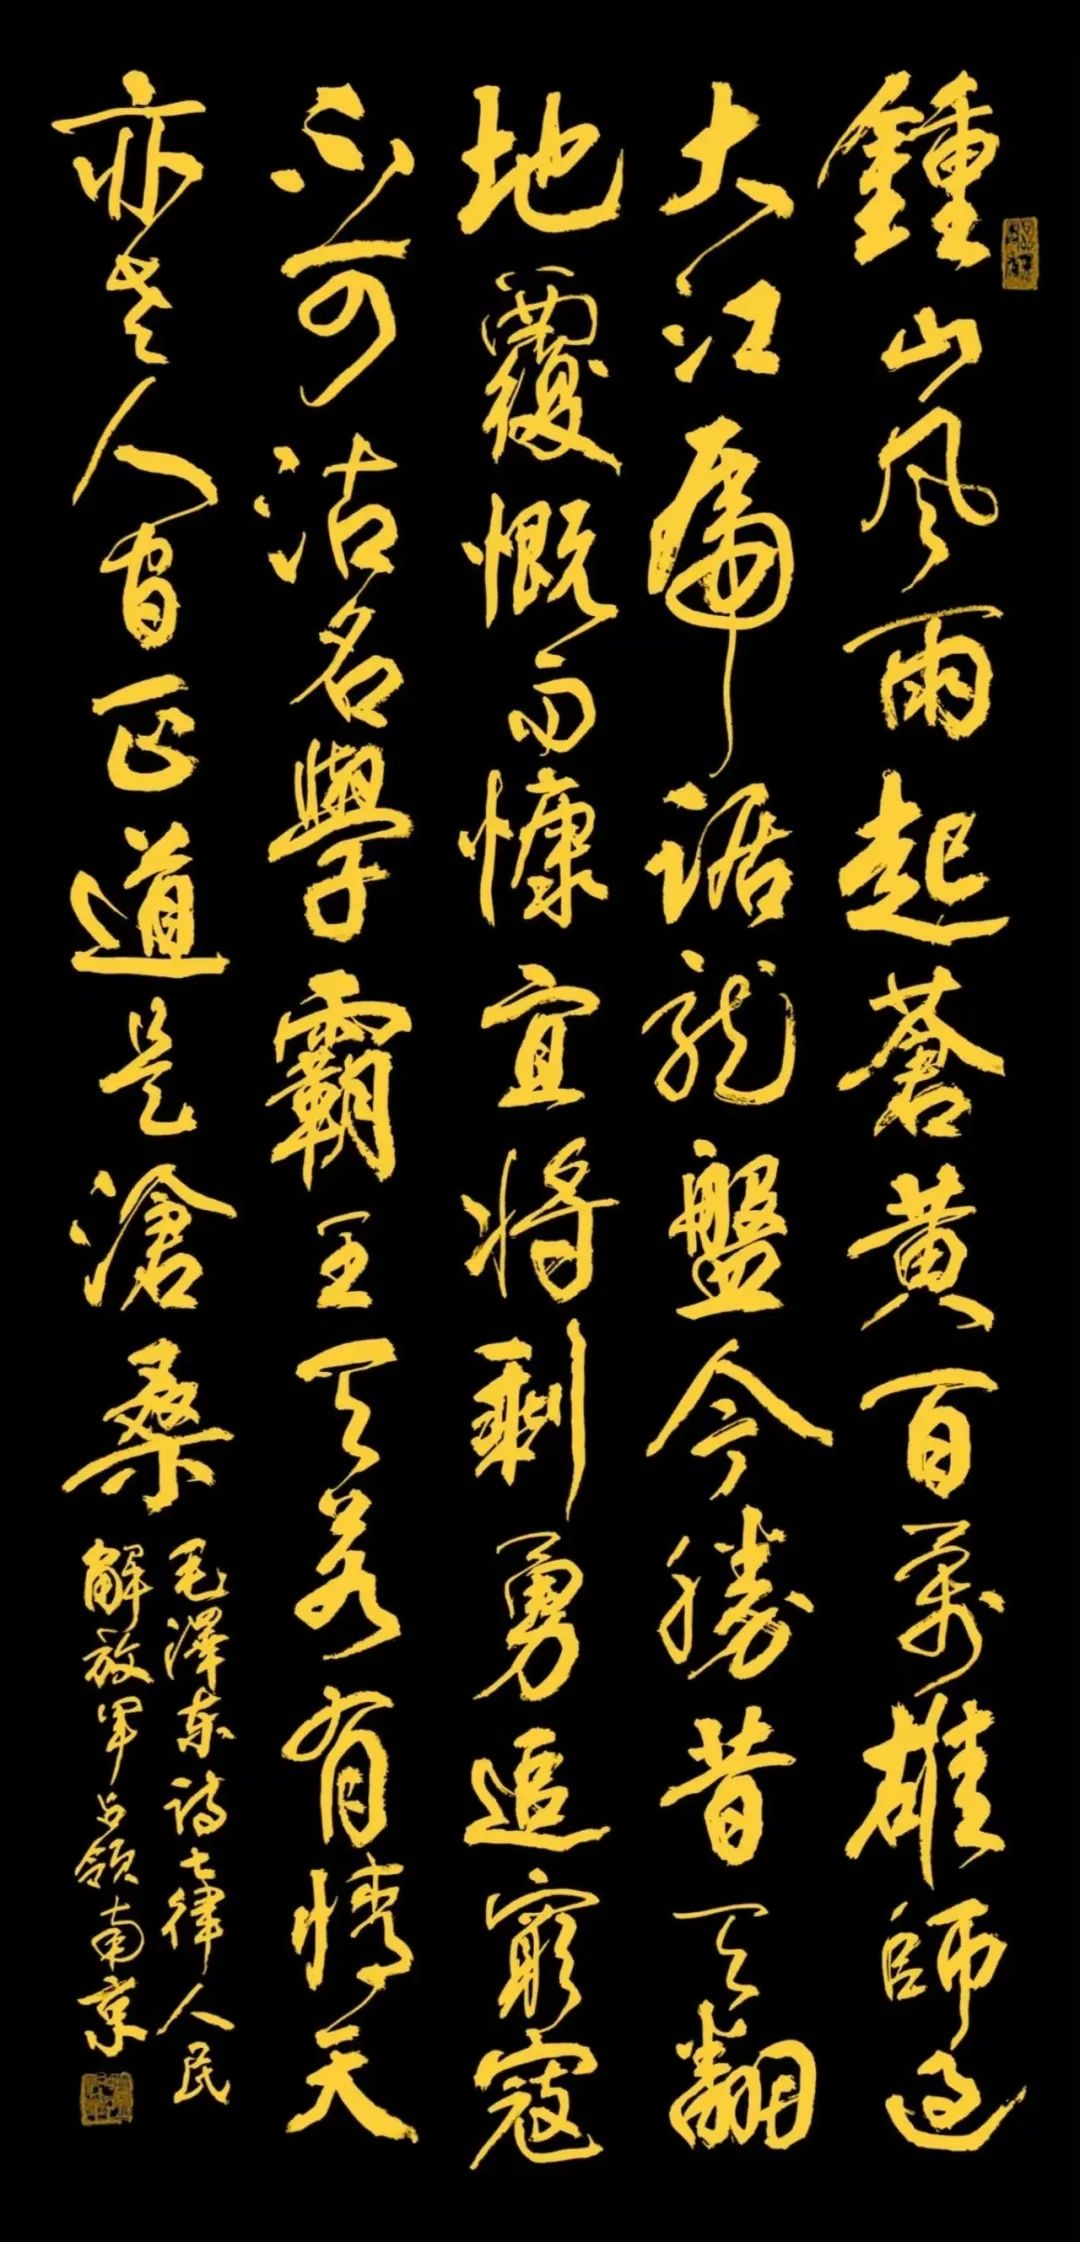 鍾山风雨起蒼黄百萬雄師过
大江虎踞龙盤今勝昔天翻
地覆慨而慷宜将剩勇追窮寇
不可沽名學霸王天若有情天
亦老人间正道是滄桑
毛澤东诗七律人民
解放军占领南京